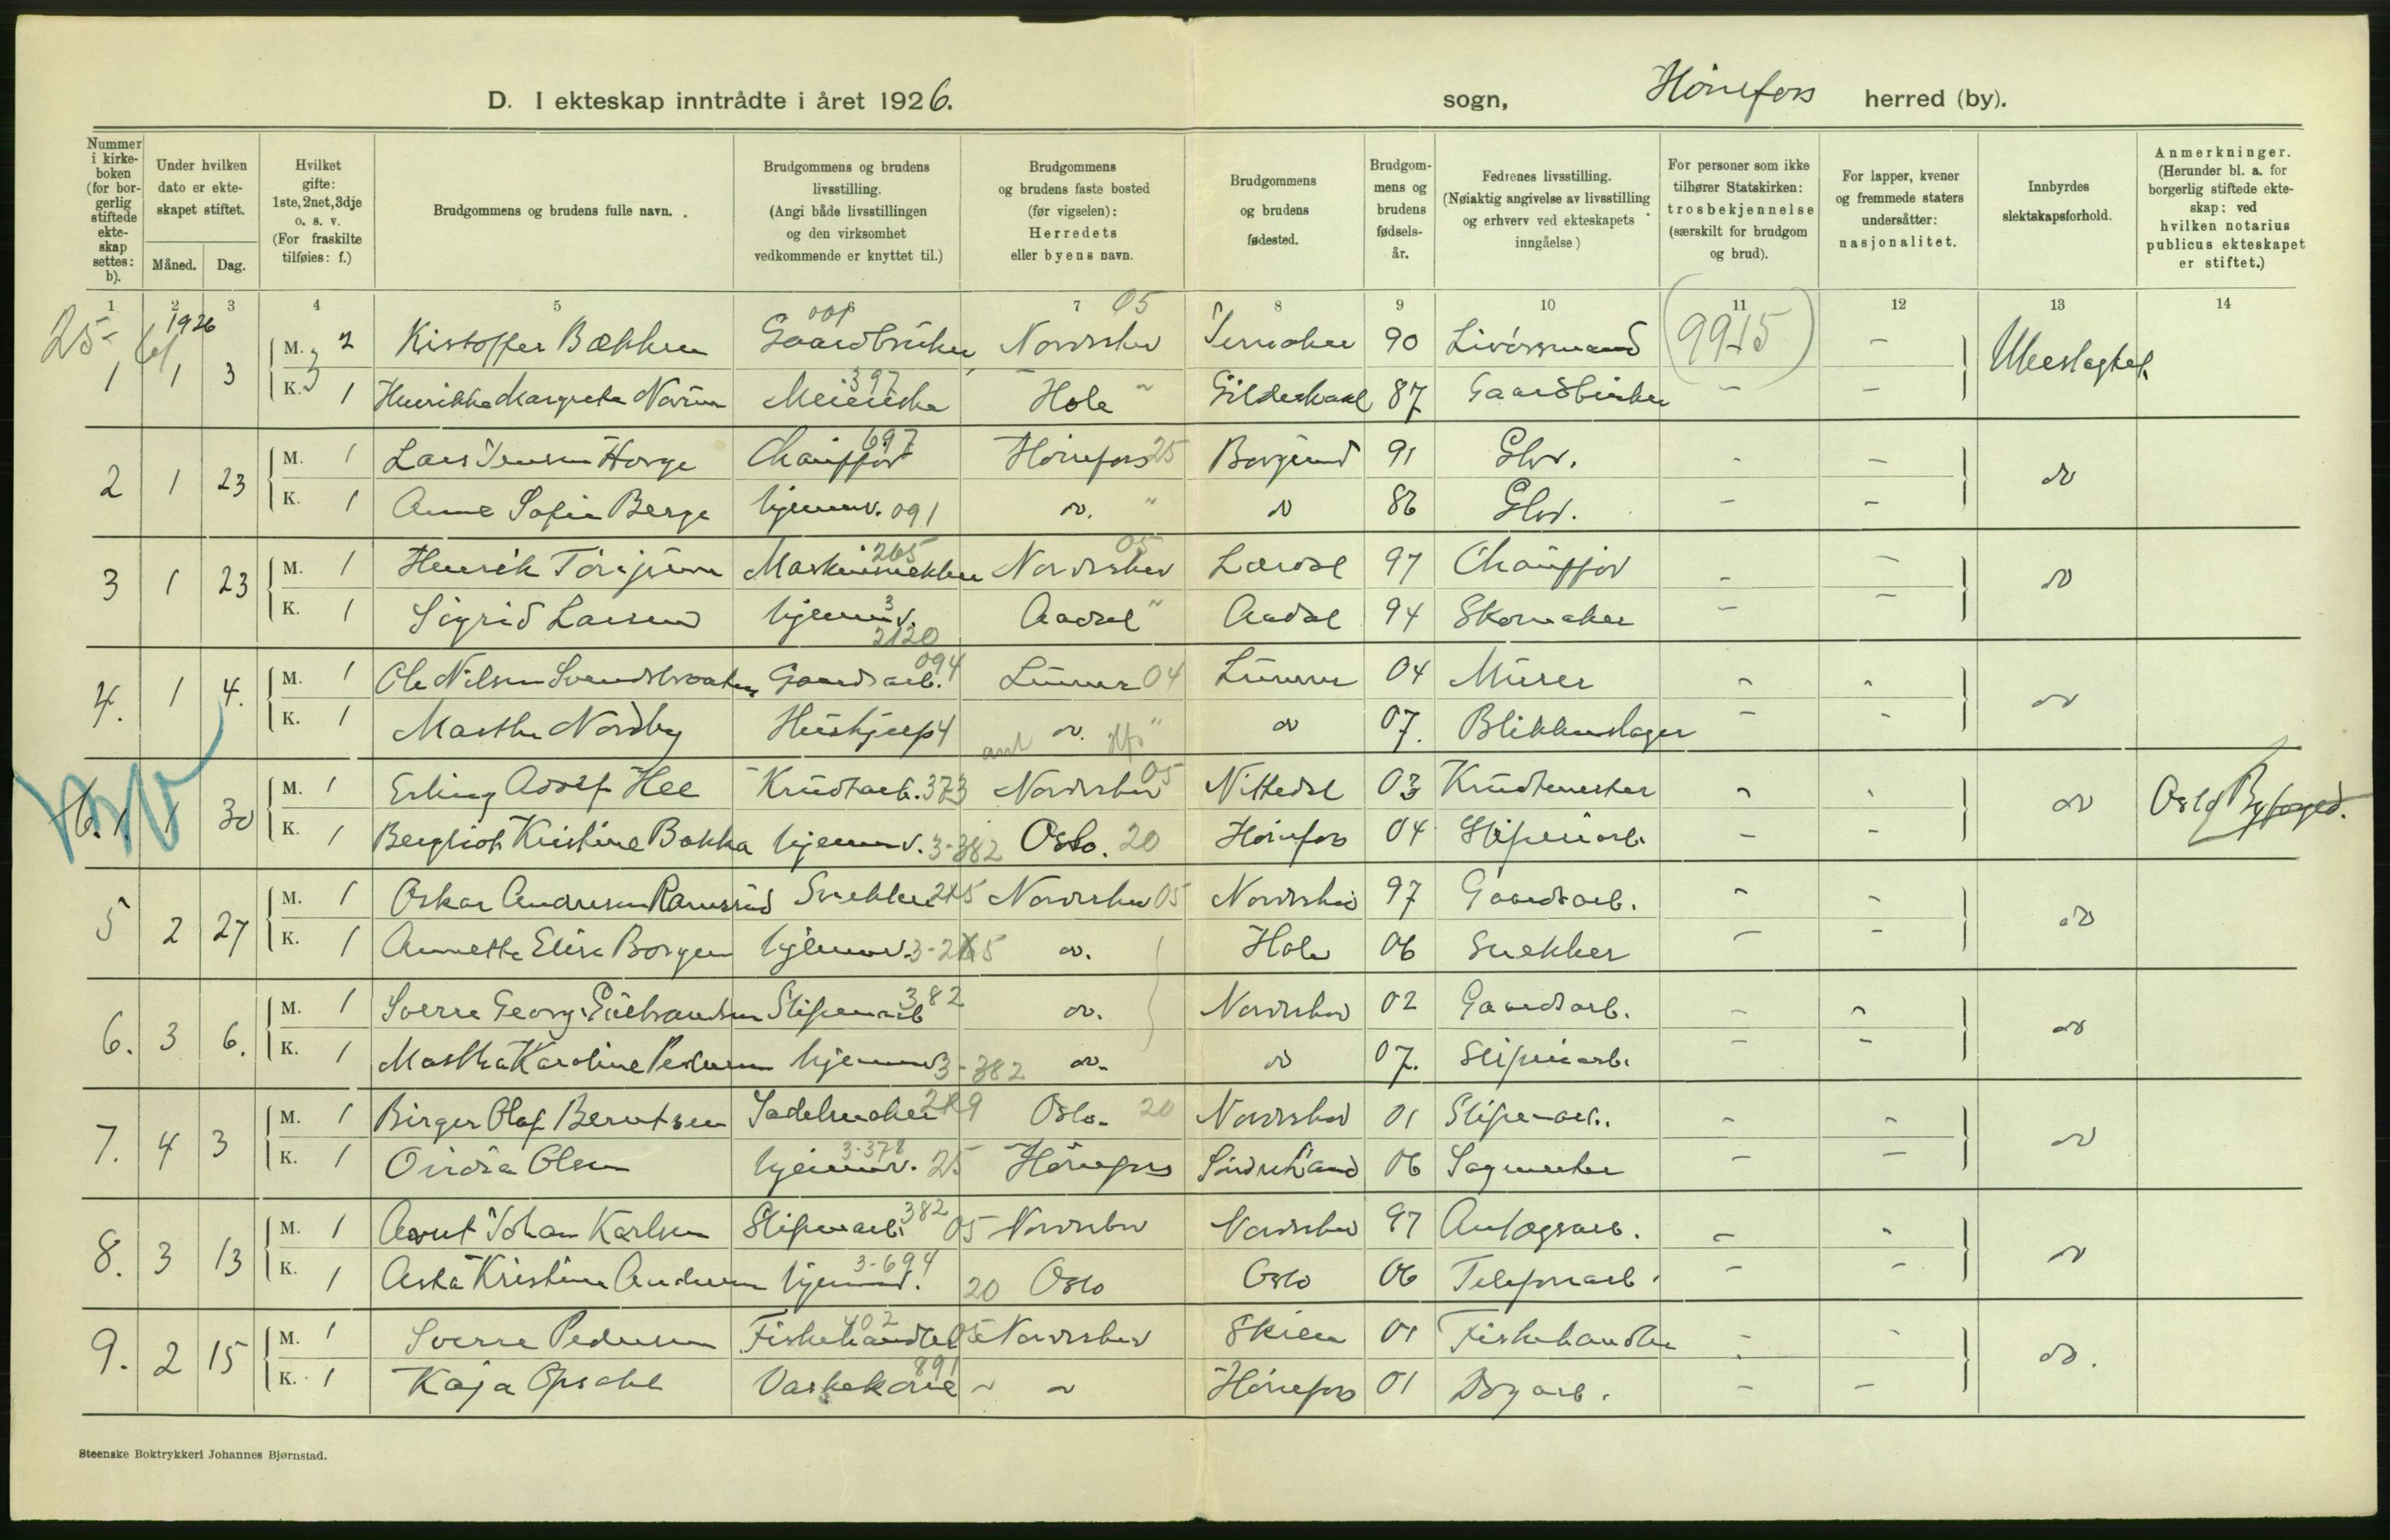 D. I ekteskap inntrådte i året 1926. sogn, Hönefoss herred (by).
Nummer i kirkeboken (for borgerlig stiftede ekteskap settes: b).
Under hvilken dato er ekteskapet stiftet.
Måned. Dag.
Hvilket gifte: 1ste, 2net, 3dje o. s. v. (For fraskilte tilføies: f.)
Brudgommens og brudens fulle navn.
Brudgommens og brudens livsstilling. (Angi både livsstillingen og den virksomhet vedkommende er knyttet til.)
Brudgommens og brudens faste bosted (før vigselen): Herredets eller byens navn.
Brudgommens og brudens fødested.
Brudgommens og brudens fødselsår.
Fedrenes livsstilling. (Nøiaktig angivelse av livsstilling og erhverv ved ekteskapets inngåelse)
For personer som ikke tilhører Statskirken: trosbekjennelse (særskilt for brudgom og brud).
For lapper, kvener og fremmede staters undersåtter: nasjonalitet.
Innbyrdes slektskapsforhold.
Anmerkninger. (Herunder bl. a. for borgerlig stiftede ekteskap: ved hvilken notarius publicus ekteskapet er stiftet.)
1 2 3 4 5 6 7 8 9 10 11 12 13 14
25 1926 05 9915
1 1 3 M. 2 Kistoffer Bækken Gaardbruker Nordrehov 90 - Ubeslægtet
K. 1 Henrikke Margrete 397 Meierske Hole " Gildeskaal 87 Gaardbruker - -
2 1 23 M. 1 Lars Jensen Horge 697 Chauffør Hönefoss 25 Borgund 91 Gbr. - - do
K. 1 Anne Sofie Berge hjemmev. 091 do. " do 86 Gbr. - -
3 1 23 M. 1 Henrik Torsjusen Maskinsnekker 265 Nordrehov 05 Lærdal 97 Chauffør - - do
K. 1 Sigrid Larsen hjemmev. 3 2120 Aadal " Aadal 94 Skomaker - -
4. 1 4. M. 1 Ole Nilsen Gaardsarb. 094 Lunner 04 Lunner 04 Murer - - do
K. 1 Marthe Nordby Hushjelp 4 do. " do 07. Blikkenslager - -
30 M. 1 Erling Adolf Hee Krudtarb. 373 Nordrehov 05 Nittedal 03 Krudtmester - - do Oslo Byfoged.
K. 1 Bergliot Kristine Bakka hjemmev. 3-382 Oslo. 20 Hönefos 04 Sliperiarb. - -
5 2 27 M. 1 Oskar Andresen Ramsrud Snekker 05 Nordrehov Nordrehov 97 Gaardsarb. - - do
K. 1 Annette Elise Borgen hjemmev. do. Hole 06 Snekker - -
6. 3 6. M. 1 Sverre Georg Gulbrandsen Sliperiarb 382 do. Nordrehov 02 Gaardsarb. - - do
K. 1 Martha Karoline Pedersen hjemmev 3-382 do. do 07. Sliperiarb. - -
7. 4 3 M. 1 Birger Olaf Berntsen Sadelmaker Oslo. 20 Nordrehov 01 Sliperiarb. - - do
K. 1 Ovidia Olsen hjemmev. 3-378 25 Hönefoss Söndre Land 06 Sagmester - -
8. 3 13 M. 1 Arnt Johan Karlsen Sliperiarb. 382 05 Nordrehov Nordrehov 97 Anlægsarb. - - do
K. 1 Asta Kristine Andersen hjemmev. 3-694 20 Oslo Oslo 06 Telefonarb. - -
9. 2 15 M. 1 Sverre Pedersen Fiskehandler 402 05 Nordrehov Skien 01 Fiskehandler - - do.
K. 1 Kaja Opsahl Vaskekone 891 Hönefos 01 Dagarb. - -
Steenske Boktrykkeri Johannes Bjørnstad.